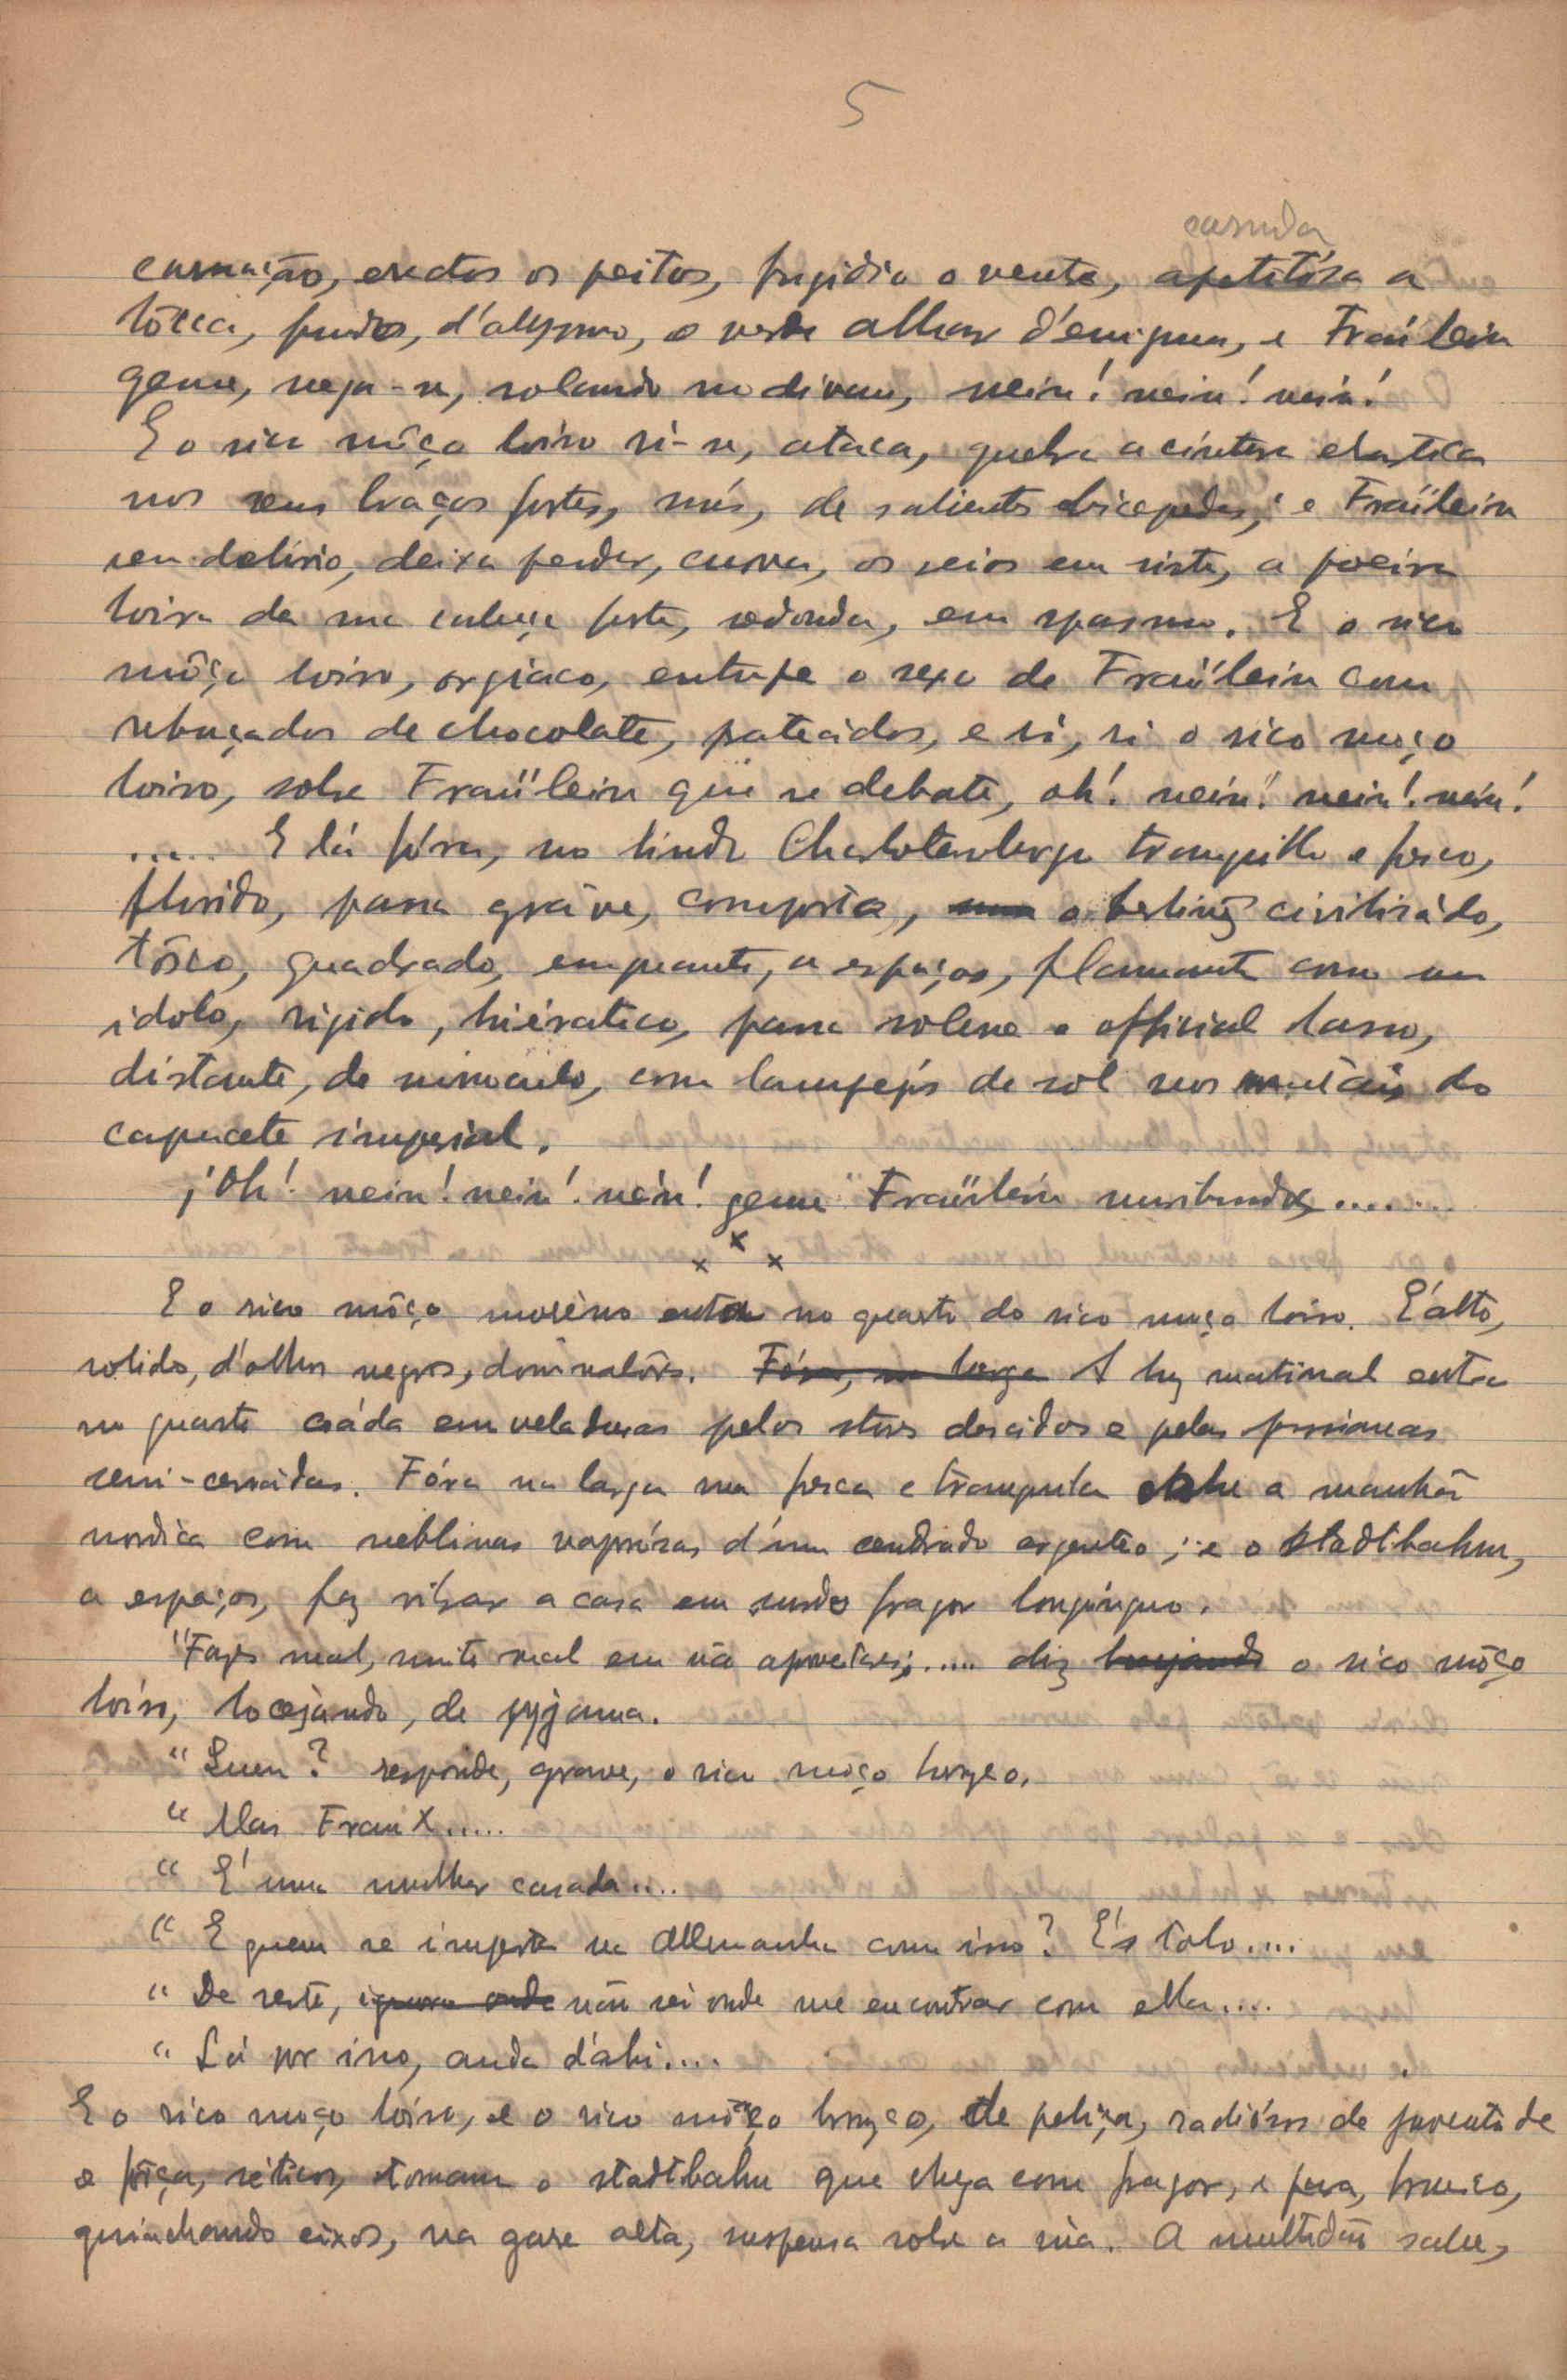 5
carnuda
carnação, erectos os peitos, fugidio o ventre, apetitósa a
bôcca, fundos, d'abysmo, o verde olhar d'enigma, e Fraülein
geme, nega-se, rolando no divan, nein! nein! nein!
E o rico môço loiro ri-se, ataca, quebra a cintura elastica
nos seus braços fortes, nús, de salientes bicepedes; e Fraülein
em delirio, deixa pender, curva, os seios em riste, a poeira
loira da sua cabeça forte, redonda, em spasmo. E o rico
môço loiro, orgiaco, entupe o sexo de Fraülein com
rebuçados de chocolate, prateados, e ri, ri o rico moço
loiro, sobre Fraülein que se debate, oh! nein! nein! nein!
..... E lá fóra, no lindo Charlotenburgo tranquillo e fresco,
florido, passa gráve, composto, o berlinês civilisádo,
tôsco, quadrado, emquanto, a espaços, flamante como um
idolo, rigido, hiératico, passa solene o official louro,
distante, de monoculo, com lampejos de sol nos metáis do
capacete imperial.
¡Oh! nein! nein! nein! geme Fraülein moribunda.......
x x x
E o rico môço moreno entra no quarto do rico moço loiro. E' alto,
solido, d'olhos negros, dominadôres. Fóra, na larga A luz matinal entra
no quarto coáda em veladuras pelos stores descidos e pelas persianas
semi-cerradas. Fóra na larga rua fresca e tranquila a manhã
nordica com neblinas vaporósas d'um cendrado argenteo; e o Stadtbahn,
a espaços, faz vibrar a casa em surdo fragor longinquo.
"Fazes mal, muito mal em não aproveitares;..... diz bocejando o rico môço
loiro, bocejando, de pyjama.
" Quem? responde, grave, o rico moço bronzeo.
" Mas Frau X.....
" E' uma mulher casada....
" E quem se importa na Allemanha com isso? E's tolo....
" De resto, ignoro onde não sei onde me encontrar com ella....
" Lá por isso, anda d'ahi....
E o rico moço loiro, e o rico môço bronzeo, de peliça, radiósos de juventude
e fôrça, tomam o stadtbahn que chega com fragor, e para, brusco,
guinchando eixos, na gare alta, suspensa sobre a rúa. A multidão sahe,